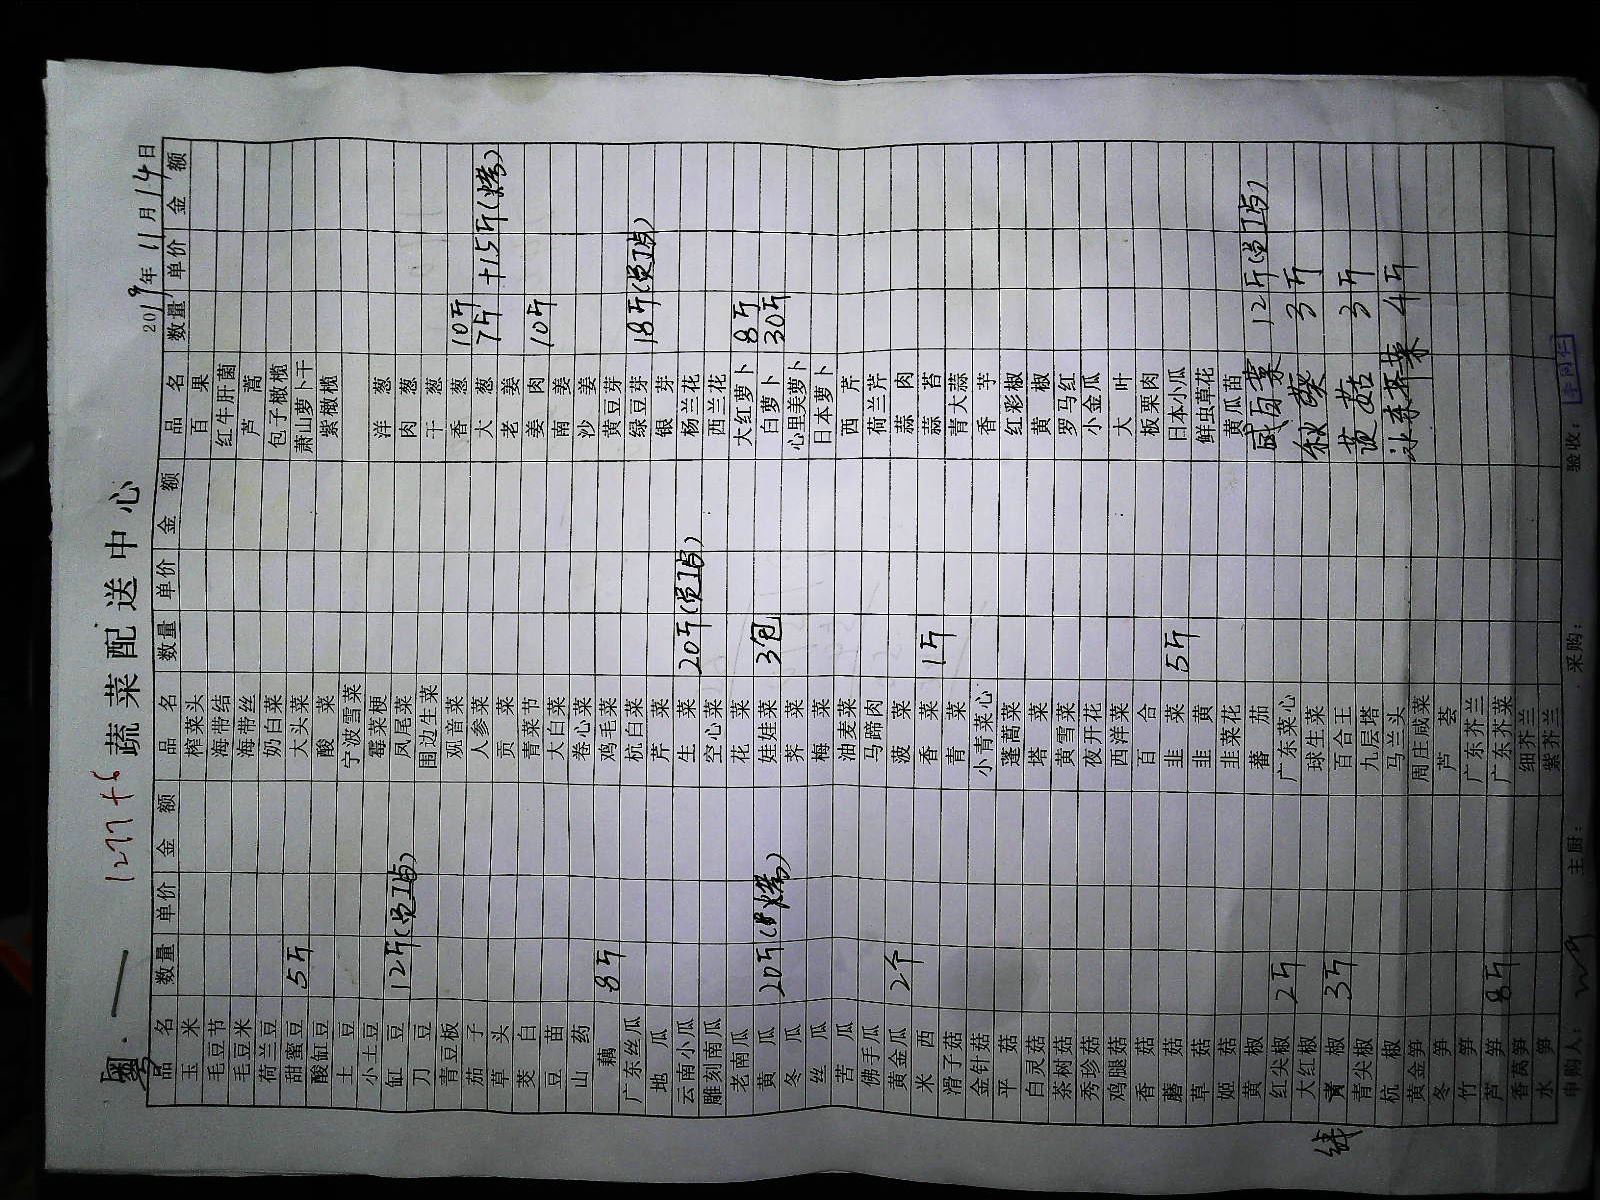 粤·一 1277+6 蔬菜配送中心
2019年11月14日
品名 数量 单价 金额 品名 数量 单价 金额 品名 数量 单价 金额
玉米 榨菜头 百果
毛豆节 海带结 红牛肝菌
毛豆米 海带丝 芦蒿
荷兰豆 奶白菜 包子橄榄
甜蜜豆 5斤 大头菜 萧山萝卜干
酸缸豆 酸菜 紫橄榄
土豆 宁波雪菜
小土豆 霉菜梗 洋葱
缸豆 12斤(员工占) 凤尾菜 肉葱
刀豆 围边生菜 干葱
青豆板 观音菜 香葱 10斤
茄子 人参菜 大葱 7斤 +15斤(烤)
草头 贡菜 老姜
茭白 青菜节 姜肉 10斤
豆苗 大白菜 南姜
山药 卷心菜 沙姜
藕 8斤 鸡毛菜 黄豆芽
广东丝瓜 杭白菜 绿豆芽 18斤(员工占)
地瓜 芹菜 银芽
云南小瓜 生菜 20斤(员工占) 杨兰花
雕刻南瓜 空心菜 西兰花
老南瓜 花菜 大红萝卜 8斤
黄瓜 20斤(烤) 娃娃菜 3包 白萝卜 30斤
冬瓜 荠菜 心里美萝卜
丝瓜 梅菜 日本萝卜
苦瓜 油麦菜 西芹
佛手瓜 马蹄肉 荷兰芹
黄金瓜 2个 菠菜 蒜肉
米西 香菜 1斤 蒜苔
滑子菇 青菜 青大蒜
金针菇 小青菜心 香芋
平菇 蓬蒿菜 红彩椒
白灵菇 塔菜 黄椒
茶树菇 黄雪菜 罗马红
秀珍菇 夜开花 小金瓜
鸡腿菇 西洋菜 大叶
香菇 百合 板栗肉
蘑菇 韭菜 5斤 日本小瓜
草菇 韭黄 鲜虫草花
姬菇 韭菜花 黄瓜苗
黄椒 蕃茄 咸白菜 12斤(员工占)
红尖椒 2斤 广东菜心
大红椒 球生菜 秋葵 3斤
线 青椒 3斤 百合王
青尖椒 九层塔 茨菇 3斤
杭椒 马兰头
黄金笋 周庄咸菜 4斤
冬笋 芦荟
竹笋 广东芥兰
芦笋 8斤 广东芥菜
香莴笋 细芥兰
水笋 紫芥兰
申购人： 主厨： 采购： 验收：